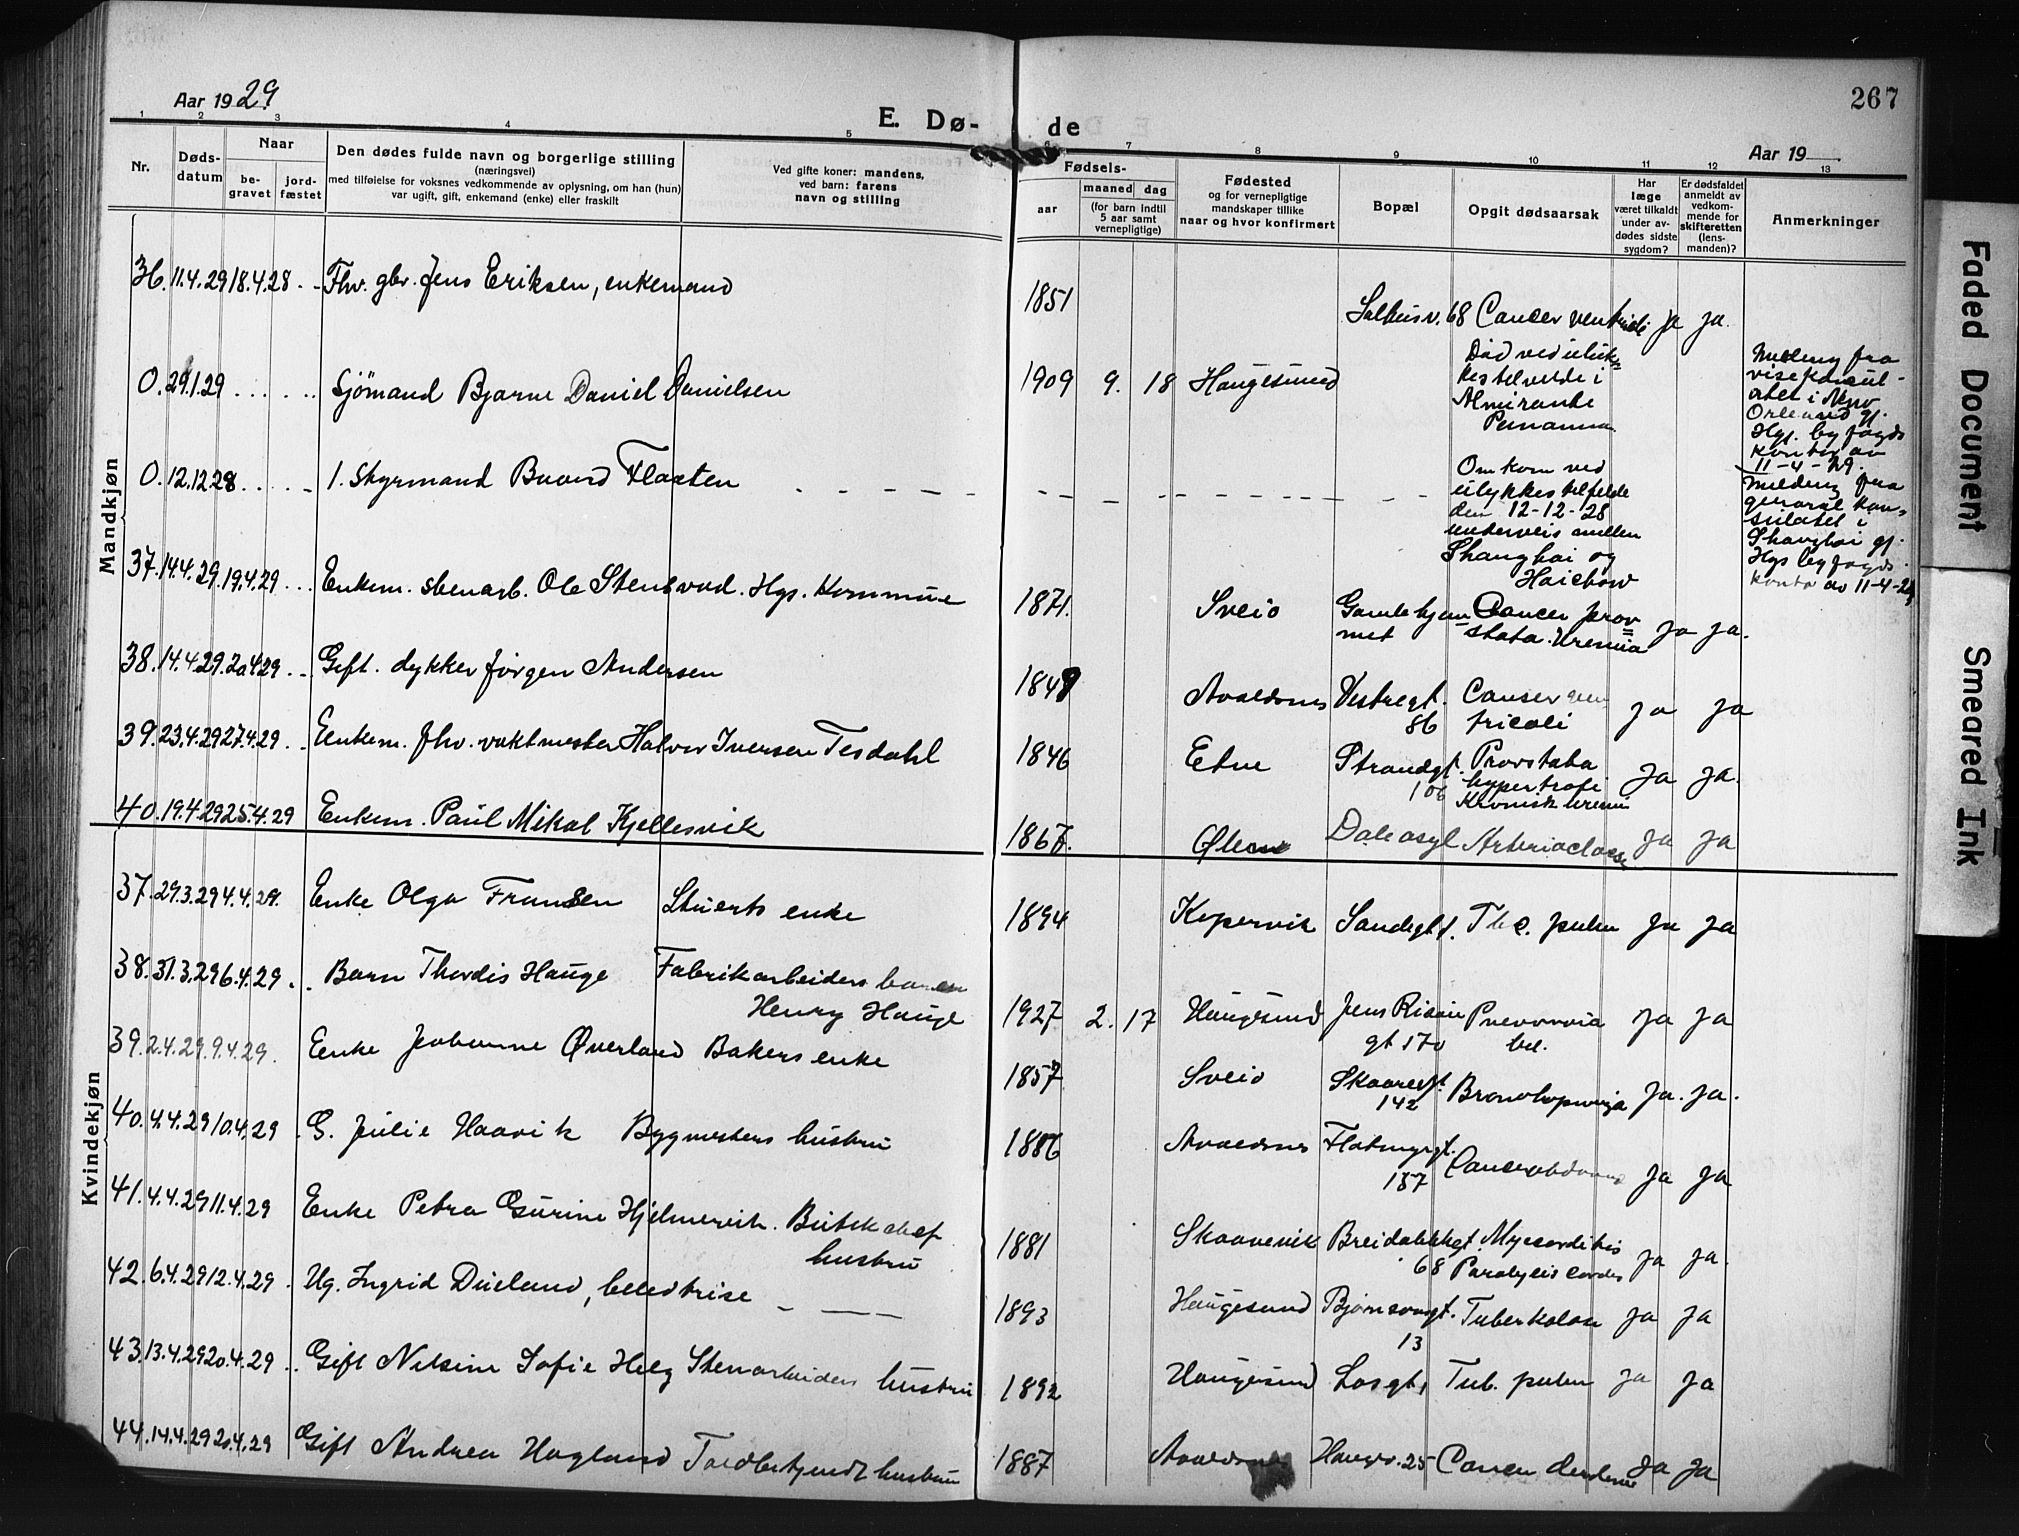 Aar 1929.
267
E. Dø-
de
Aar 19
1 2 3 4 5 6 7 8 9 10 11 12 13
Nr.
Døds-
datum
Naar
be-
gravet
jord-
fæstet
Den dødes fulde navn og borgerlige stilling
(næringsvei)
med tilføielse for voksnes vedkommende av oplysning, om han (hun)
var ugift, gift, enkemand (enke) eller fraskilt
Ved gifte koner: mandens,
ved barn: farens
navn og stilling
Fødsels-
aar
maaned
dag
(for barn indtil
5 aar samt
vernepligtige)
Fødested
og for vernepligtige
mandskaper tillike
naar og hvor konfirmert
Bopæl
Opgit dødsaarsak
Har
læge
været tilkaldt
under av-
dødes sidste
sygdom?
Er dødsfaldet
anmeldt av
vedkom-
mende for
skifteretten
(lens-
manden)?
Anmerkninger
Mandkjøn
36. 11.4.29 18.4.28 Fhv. gbr. Jens Eriksen, enkemand 1851 Salhusv. 68 Cancer ventriculi ja ja.
0. 29.1.29 Sjömand Bjarne Daniel Danielsen 1909 9. 18 Haugesund
Död ved ulyk-
kestilfelde i
Almirante
Panama
Melding fra
visekonsul-
atet i New
Orleans gj.
Hgs. byfogds
kontor av
11-4-29.
0. 12.12.28 1. Styrmand Flaaten
Omkom ved
ulykkestilfelde
den 12-12-28
underveis mellem
Shanghai og
Haichow
Melding fra
general kon-
sulatet i
Shanghai gj.
Hgs byfogds
kontor av 11-4-29
37. 14.4.29. 19.4.29 Enkem. stenarb. Ole Stensvad. Hgs. Kommune 1871. Sveio Gamlehjem-
met Cancer pros-
tata. Uremia ja ja.
38. 14.4.29. 20.4.29 Gift. dykker Jørgen Andersen 1849 Avaldsnes Vestregt.
86 Canser ven
triculi ja ja
39. 23.4.29 27.4.29 Enkem. fhv. vaktmester Halvor Iversen Tesdahl 1846 Etne Strandgt.
106 Provstata
hypertrofi
Kronisk uremi ja ja.
40. 19.4.29 25.4.29 Enkem. Paul Mikal Kjellesvik 1867. Ølen Dale asyl ja ja
Kvindekjøn
37. 29.3.29 4.4.29. Enke Olga Fransen Stuerts enke 1894 Kopervik Sandgt. Tbc. pulm ja ja
38. 31.3.29 6.4.29 Barn Thordis Hauge Fabrikarbeiders barn
Henry Hauge 1927 2. 17 Haugesund Jens Risøe
gt 170 ja ja
39. 2.4.29 9.4.29. Enke Johanne Øverland Bakers enke 1857 Sveio Skaaregt.
142 ja. ja.
40. 4.4.29 10.4.29 G. Julie Haavik Bygmesters hustru 1886 Avaldsnes Flotmyrgt.
157 ja ja
41. 4.4.29 11.4.29 Enke Petra Gurine Hjelmervik. Butikchef
hustru 1881 Skaanevik Breidablikgt.
68 Myocarditis
Paralysis cordis ja ja.
42. 6.4.29 12.4.29 Ug. Ingrid Dueland, 1893 Haugesund Bjørnsonsgt.
13 Tuberkulose ja ja
43. 13.4.29 20.4.29 Gift Nilsine Sofie Helg Stenarbeiders hustru 1892 Haugesund Tub. pulm ja ja
44. 14.4.29 20.4.29 Gift Andrea Hagland Toldbetjendts hustru 1887 Avaldsnes Haugv. 25 ja ja
Faded Document
Smeared Ink